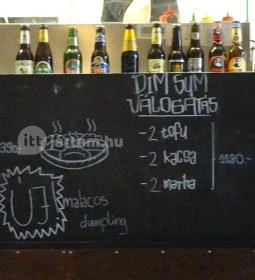 DIM SUM
VÁLOGATÁS
- 2 tofu
- 2 kacsa
- 2 marha
1180.-
390.-
ittjártam.hu
ÚJ
malacos
dumpling